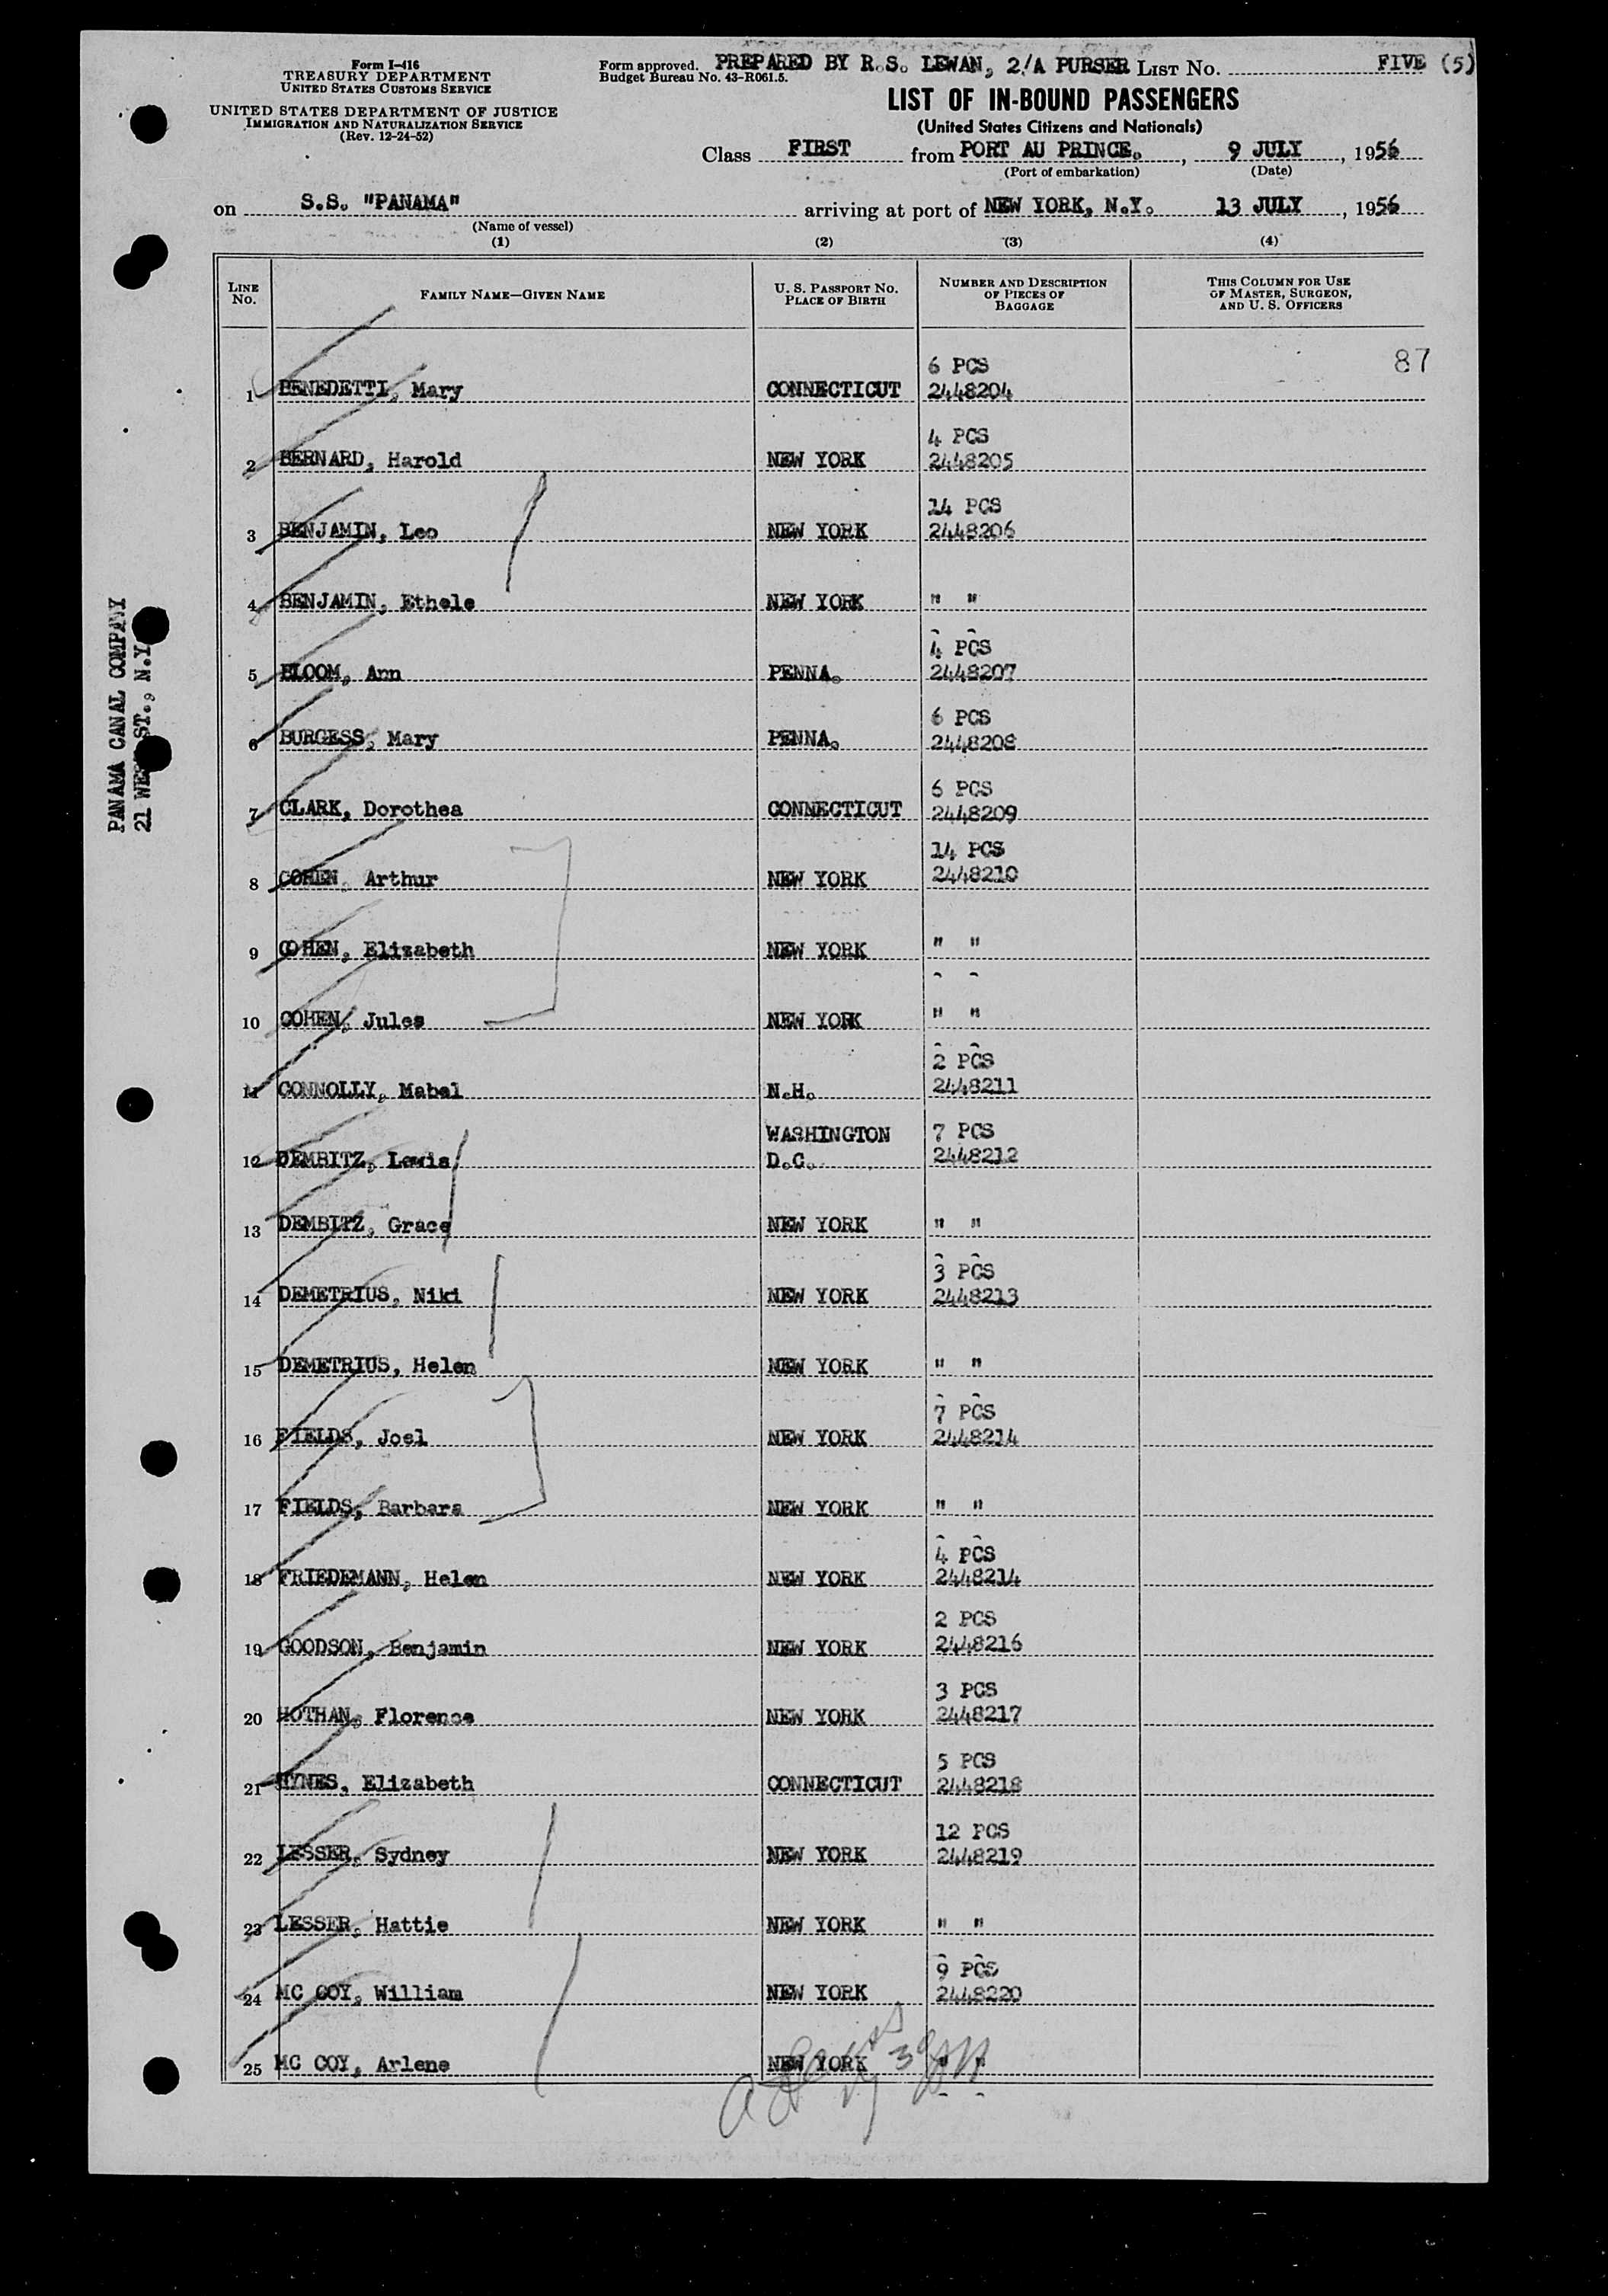 Form I-416
TREASURY DEPARTMENT
UNITED STATES CUSTOMS SERVICE
UNITED STATES DEPARTMENT OF JUSTICE
IMMIGRATION AND NATURALIZATION SERVICE
(Rev. 12-24-52)
Form approved.
Budget Bureau No. 43-R061.5.
PREPARED BY R.S. LEWAN, 2/A PURSER List No. FIVE (5)
LIST OF IN-BOUND PASSENGERS
(United States Citizens and Nationals)
Class FIRST from PORT AU PRINCE., 9 JULY, 1956
(Port of embarkation) (Date)
on S.S. "PANAMA" arriving at port of NEW YORK, N.Y. 13 JULY, 1956
(Name of vessel)
(1) (2) (3) (4)
LINE NO. FAMILY NAME—GIVEN NAME U. S. PASSPORT NO. PLACE OF BIRTH NUMBER AND DESCRIPTION OF PIECES OF BAGGAGE THIS COLUMN FOR USE OF MASTER, SURGEON, AND U. S. OFFICERS
87
6 PCS
1 BENEDETTI, Mary CONNECTICUT 2448204
4 PCS
2 BERNARD, Harold NEW YORK 2448205
14 PCS
3 BENJAMIN, Leo NEW YORK 2448206
4 BENJAMIN, Ethele NEW YORK " "
4 PCS
5 BLOOM, Ann PENNA. 2448207
6 PCS
6 BURGESS, Mary PENNA. 2448208
6 PCS
7 CLARK, Dorothea CONNECTICUT 2448209
14 PCS
8 COHEN, Arthur NEW YORK 2448210
9 COHEN, Elizabeth NEW YORK " "
10 COHEN, Jules NEW YORK " "
2 PCS
11 CONNOLLY, Mabel N.H. 2448211
WASHINGTON 7 PCS
12 DEMBITZ, Lewis D.C. 2448212
13 DEMBITZ, Grace NEW YORK " "
3 PCS
14 DEMETRIUS, Niki NEW YORK 2448213
15 DEMETRIUS, Helen NEW YORK " "
7 PCS
16 FIELDS, Joel NEW YORK 2448214
17 FIELDS, Barbara NEW YORK " "
4 PCS
18 FRIEDEMANN, Helen NEW YORK 2448214
2 PCS
19 GOODSON, Benjamin NEW YORK 2448216
3 PCS
20 HOTHAN, Florence NEW YORK 2448217
5 PCS
21 HYNES, Elizabeth CONNECTICUT 2448218
12 PCS
22 LESSER, Sydney NEW YORK 2448219
23 LESSER, Hattie NEW YORK " "
9 PCS
24 MC COY, William NEW YORK 2448220
25 MC COY, Arlene NEW YORK " "
PANAMA CANAL COMPANY
21 WEST ST., N.Y.